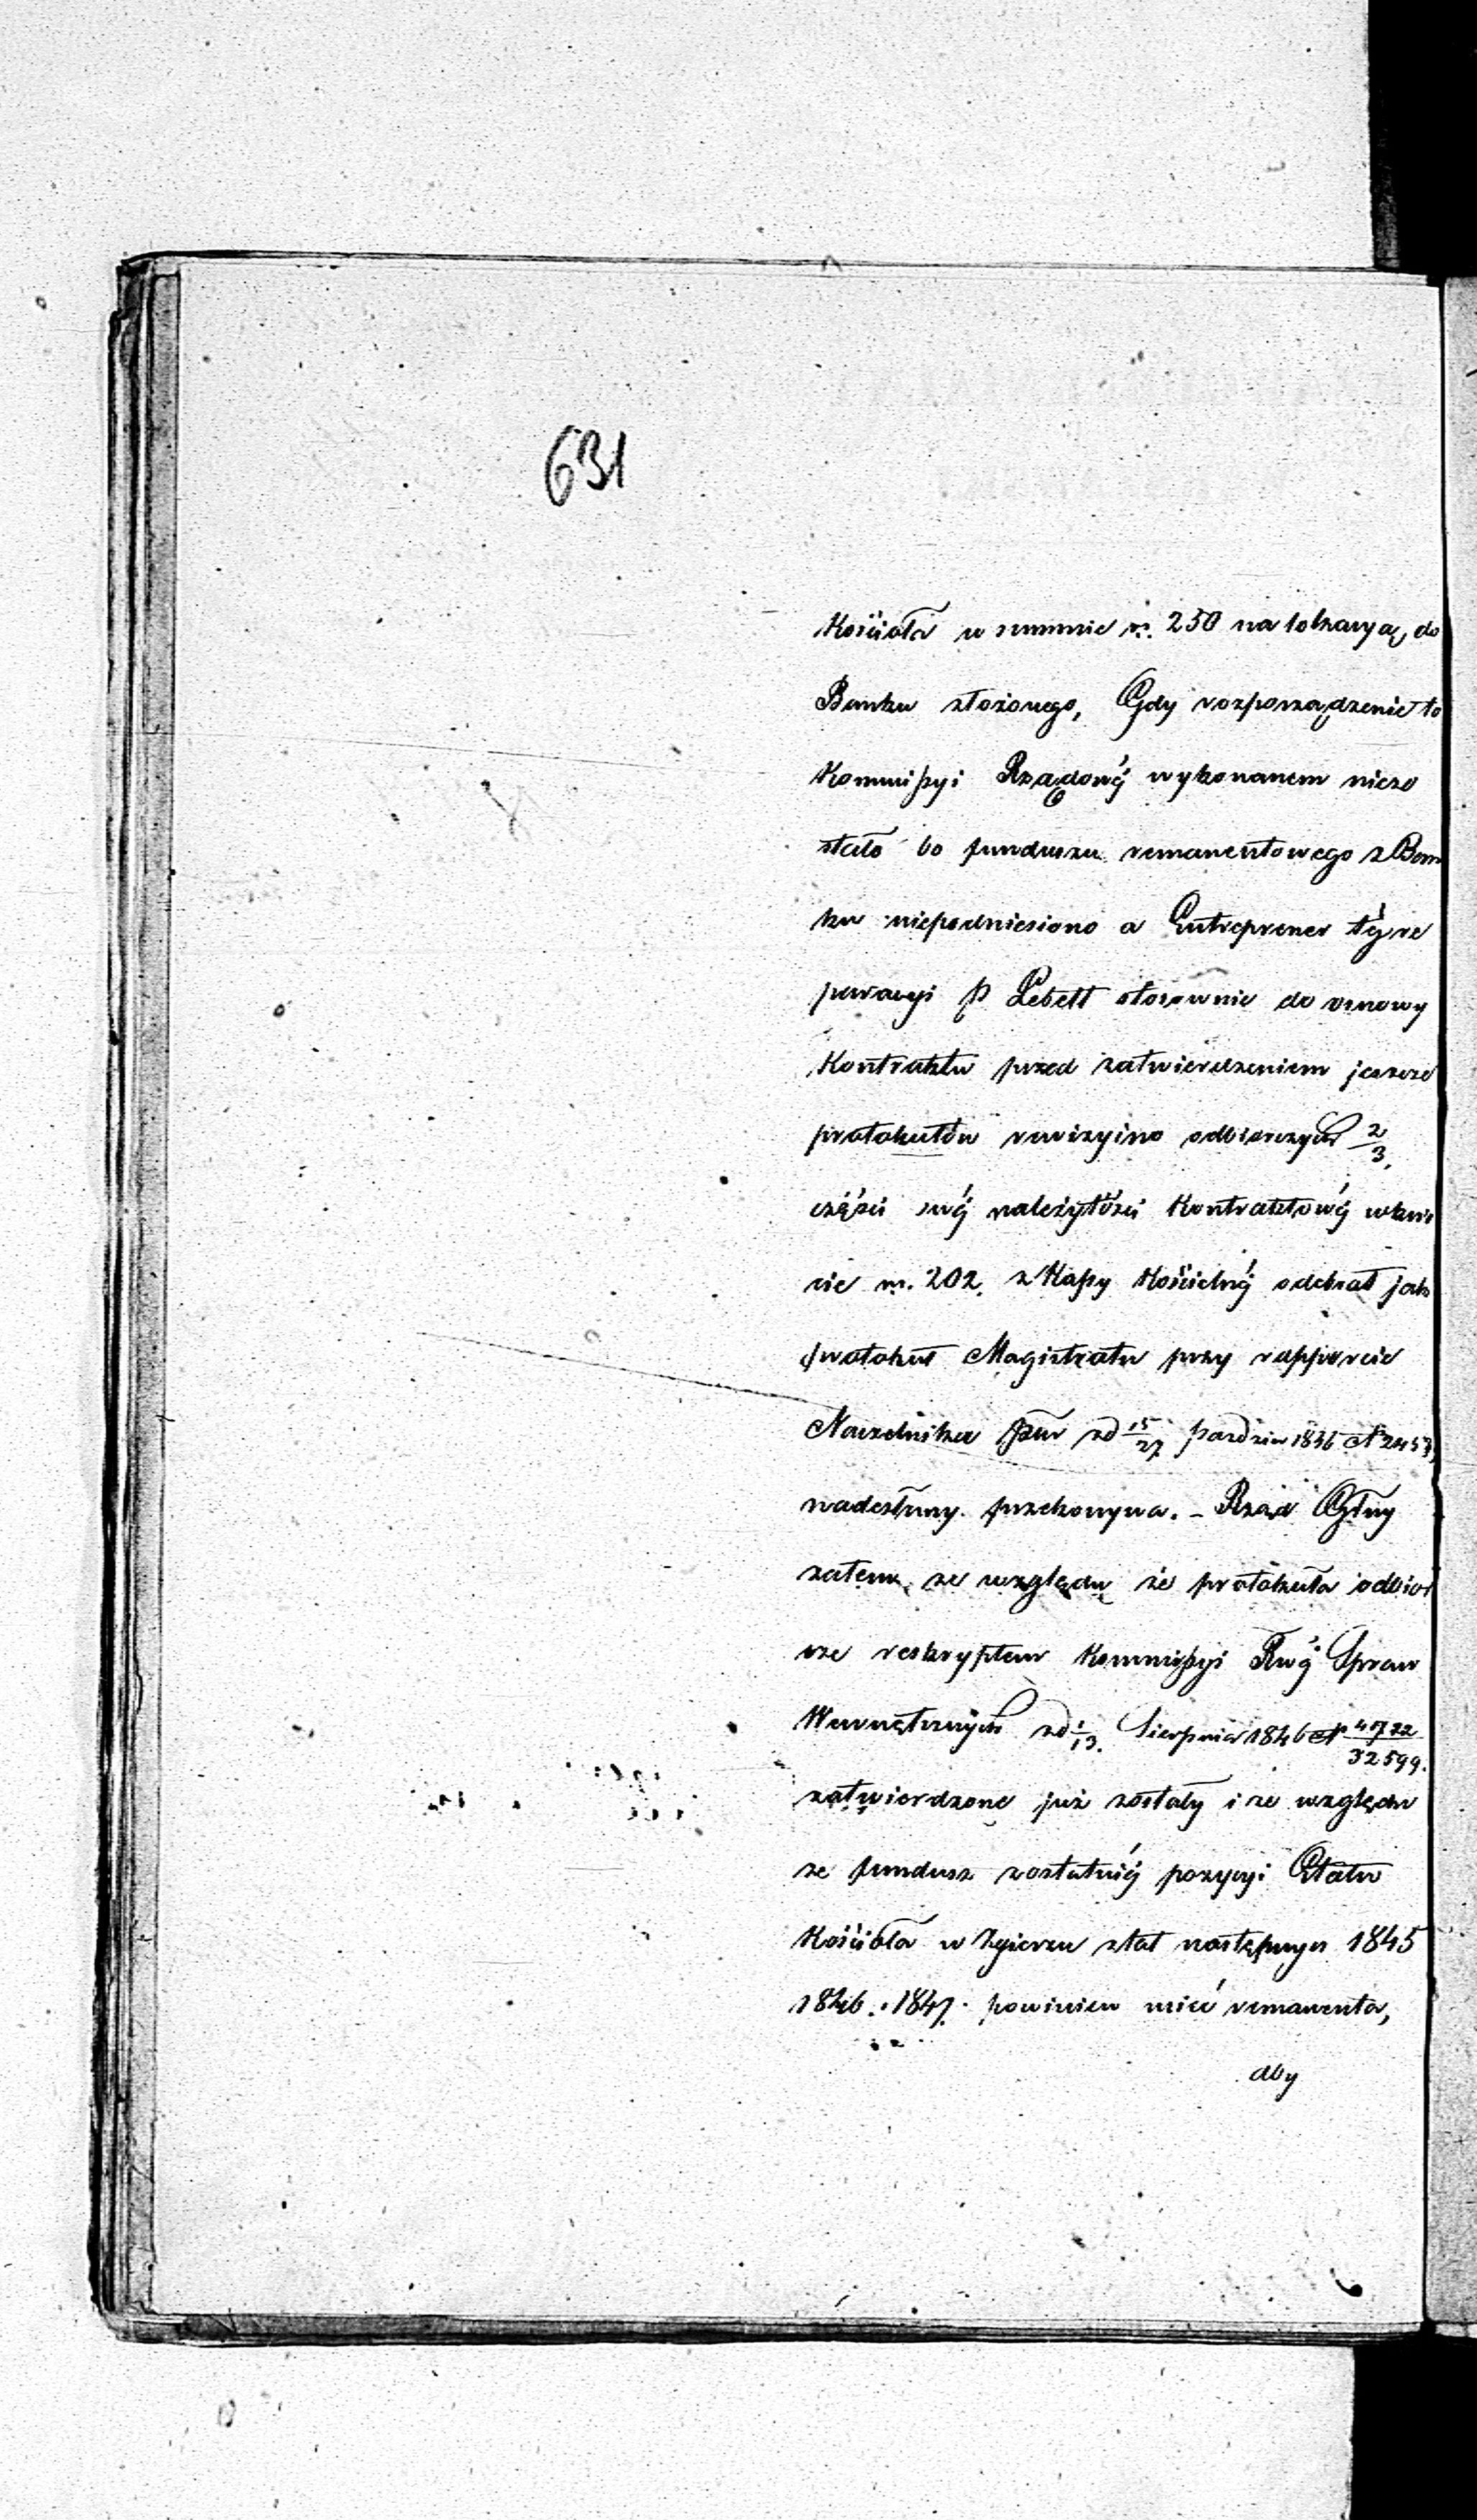 631
Kościoła w summie rs. 250 na lokacyą do
Banku złożonego, Gdy rozporządzenie to
Kommissyi Rządowéj wykonanem niezo
stało bo funduszu remanentowego z Ban
ku niepodniesiono a Entreprener téj re
paracyi P. Lebelt stosownie do osnowy
Kontraktu przed zatwierdzeniem jeszcze
protokułów rewizyino odbiorczych 2/3
części swéj należytości Kontraktowéj w kwo
cie rs. 202. z Kassy Kościelnéj odebrał jak
protokuł Magistratu przy rapporcie
Naczelnika Ptu zd 15/27 Pazdzier 1846 N 2453
nadesłany przekonywa. – Rząd Glny
zatem, ze względu że protokuła odbior
cze reskryptem Kommissyi Rwéj Spraw
Wewnętrznych zd 1/13. Sierpnia 1846 N 41722/32599.
zatwierdzone już zostały i ze względu
że fundusz z ostatniéj pozycyi Etatu
Kościoła w Zgierzu z lat następnych 1845
1846. i 1847. powinien mieć remanenta,
aby